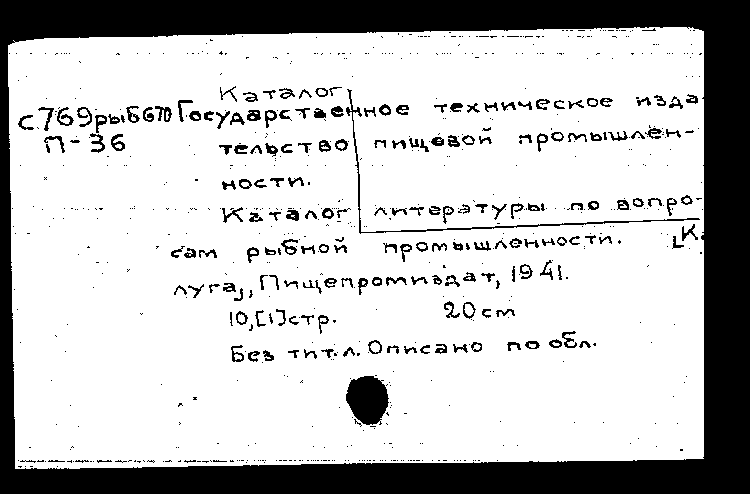 Каталог
с769рыб670 Государственное техническое изда-
П-36 тельство пищевой промышлен-
ности.
Каталог литературы по вопро-
сам рыбной промышленности. [Ка
луга], Пищепромиздат, 1941.
10,[1]стр. 20 см
Без тит.л. Описано по обл.